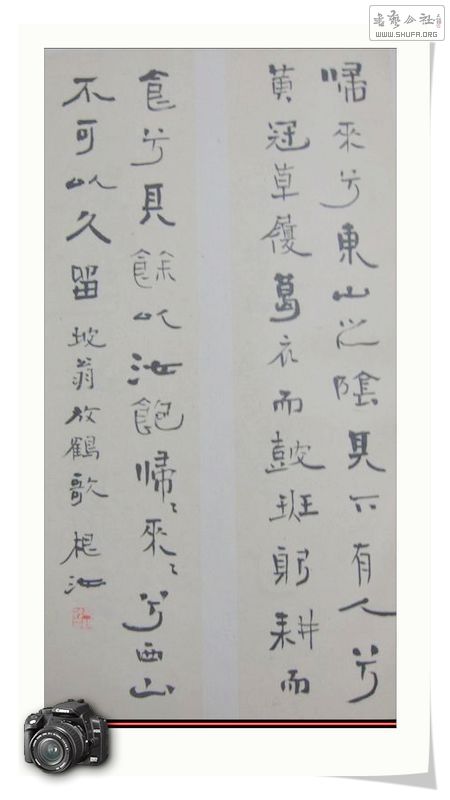 書藝公社
WWW.SHUFA.ORG
歸來兮東山之陰其下有人兮
黄冠草履葛衣而鼓琴躬耕而
食兮其餘以汝飽歸〻來〻兮西山
不可以久留 坡翁放鶴歌
Canon